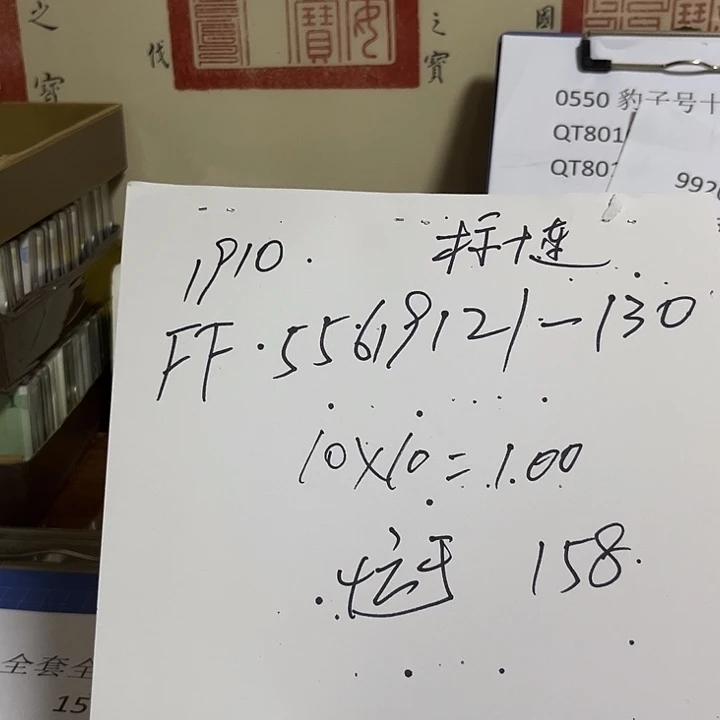 之
寶
伐
之
寶
國
0550 豹子号十
QT801
QT801
992
1910. 标十连
FF.55619121-130
10X10=1.00
158.
全套全
15